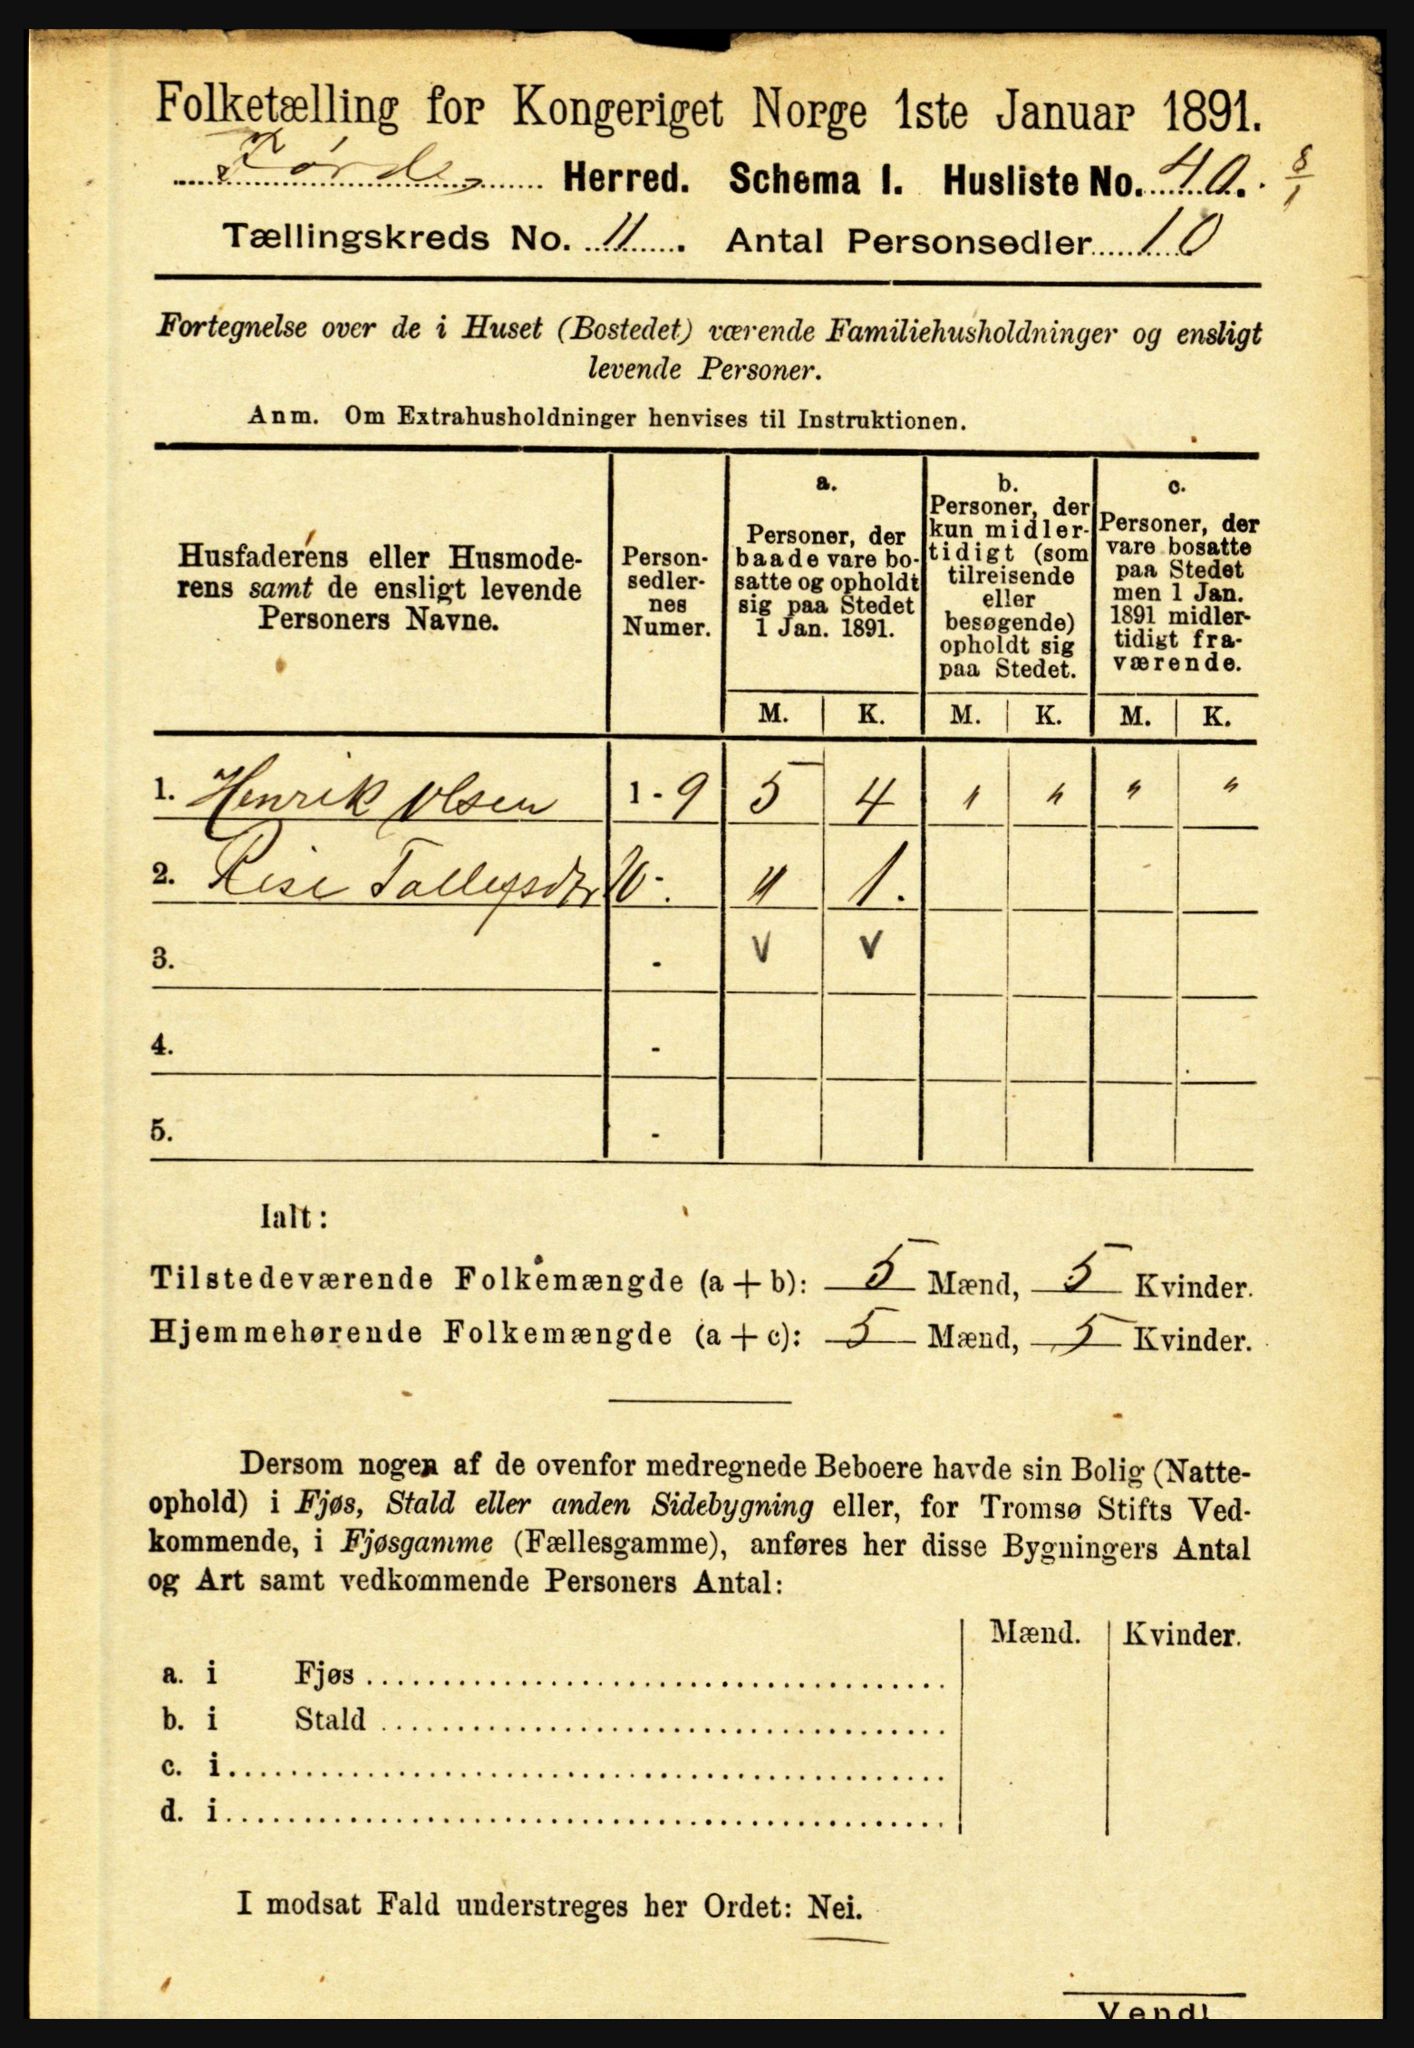 Folketælling for Kongeriget Norge 1ste Januar 1891.
Førde Herred. Schema I. Husliste No. 40. 8/1
Tællingskreds No. 11. Antal Personsedler 10
Fortegnelse over de i Huset (Bostedet) værende Familiehusholdninger og ensligt
levende Personer.
Anm. Om Extrahusholdninger henvises til Instruktionen.
Husfaderens eller Husmode-
rens samt de ensligt levende
Personers Navne.
Person-
sedler-
nes
Numer.
a.
Personer, der
baade vare bo-
satte og opholdt
sig paa Stedet
1 Jan. 1891.
b.
Personer, der
kun midler-
tidigt (som
tilreisende
eller
besøgende)
opholdt sig
paa Stedet.
c.
Personer, der
vare bosatte
paa Stedet
men 1 Jan.
1891 midler-
tidigt fra-
værende.
M. K. M. K. M. K.
1. Henrik Olsen 1 - 9 5 4 " " " "
2. 10 -. " 1.
3. - v v
4. -
5. -
Ialt:
Tilstedeværende Folkemængde (a + b): 5 Mænd, 5 Kvinder.
Hjemmehørende Folkemængde (a + c): 5 Mænd, 5 Kvinder.
Dersom nogen af de ovenfor medregnede Beboere havde sin Bolig (Natte-
ophold) i Fjøs, Stald eller anden Sidebygning eller, for Tromsø Stifts Ved-
kommende, i Fjøsgamme (Fællesgamme), anføres her disse Bygningers Antal
og Art samt vedkommende Personers Antal:
Mænd. Kvinder.
a. i Fjøs
b. i Stald
c. i
d. i
I modsat Fald understreges her Ordet: Nei.
Vend!